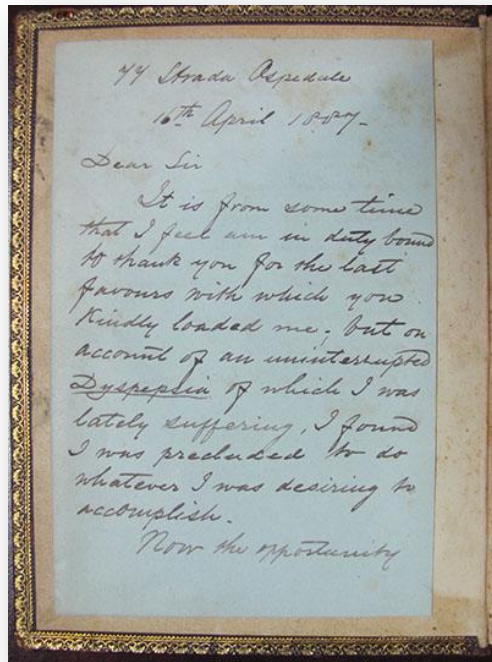 77 Strada Ospedale
16th April 1887-
Dear Sir
It is from some time
that I feel am in duty bound
to thank you for the last
favours with which you
Kindly loaded me; but on
account of an uninterrupted
Dyspepsia of which I was
lately suffering, I found
I was precluded to do
whatever I was desiring to
accomplish.
Now the opportunity